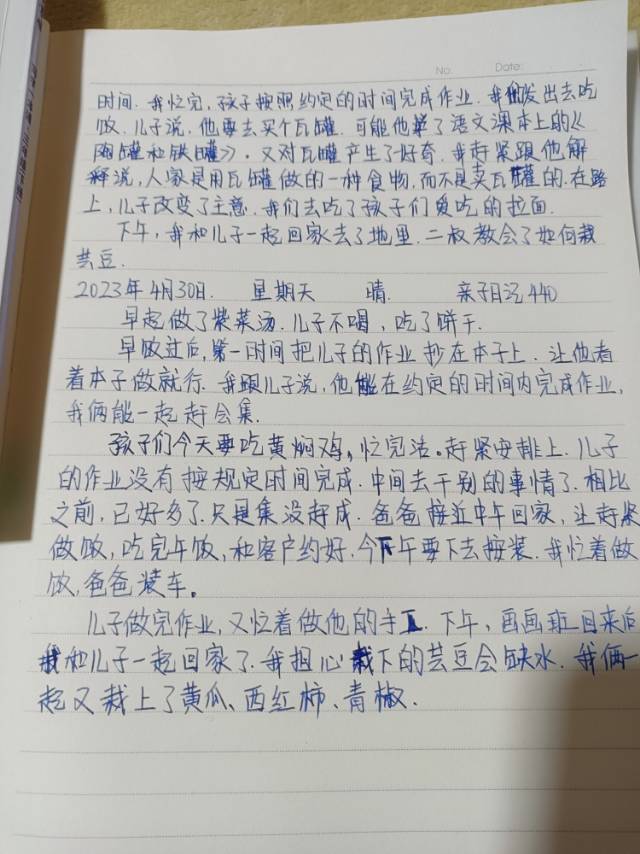 No.
Date:
时间. 我忙完, 孩子按照约定的时间完成作业. 我们发出去吃
饭. 儿子说, 他要去买个瓦罐. 可能他学了语文课本上的《
陶罐和铁罐》. 又对瓦罐产生了好奇. 我赶紧跟他解
释说, 人家是用瓦罐做的一种食物, 而不是卖瓦罐的. 在路
上, 儿子改变了主意. 我们去吃了孩子们爱吃的拉面.
下午, 我和儿子一起回家去了地里. 二叔教会了如何栽
芸豆.
2023年4月30日. 星期天 晴. 亲子日记440
早起做了紫菜汤. 儿子不喝, 吃了饼干.
早饭过后, 第一时间把儿子的作业抄在本子上. 让他看
着本子做就行. 我跟儿子说, 他能在约定的时间内完成作业,
我俩能一起赶会集.
孩子们今天要吃黄焖鸡, 忙完活。赶紧安排上. 儿子
的作业没有按规定时间完成. 中间去干别的事情了. 相比
之前, 已好多了. 只是集没赶成. 爸爸接近中午回家, 让赶紧
做饭, 吃完午饭, 和客户约好. 今下午要下去按装. 我忙着做
饭, 爸爸装车。
儿子做完作业, 又忙着做他的手工. 下午, 画画班回来后
我和儿子一起回家了. 我担心栽下的芸豆会缺水. 我俩一
起又栽上了黄瓜、西红柿、青椒.